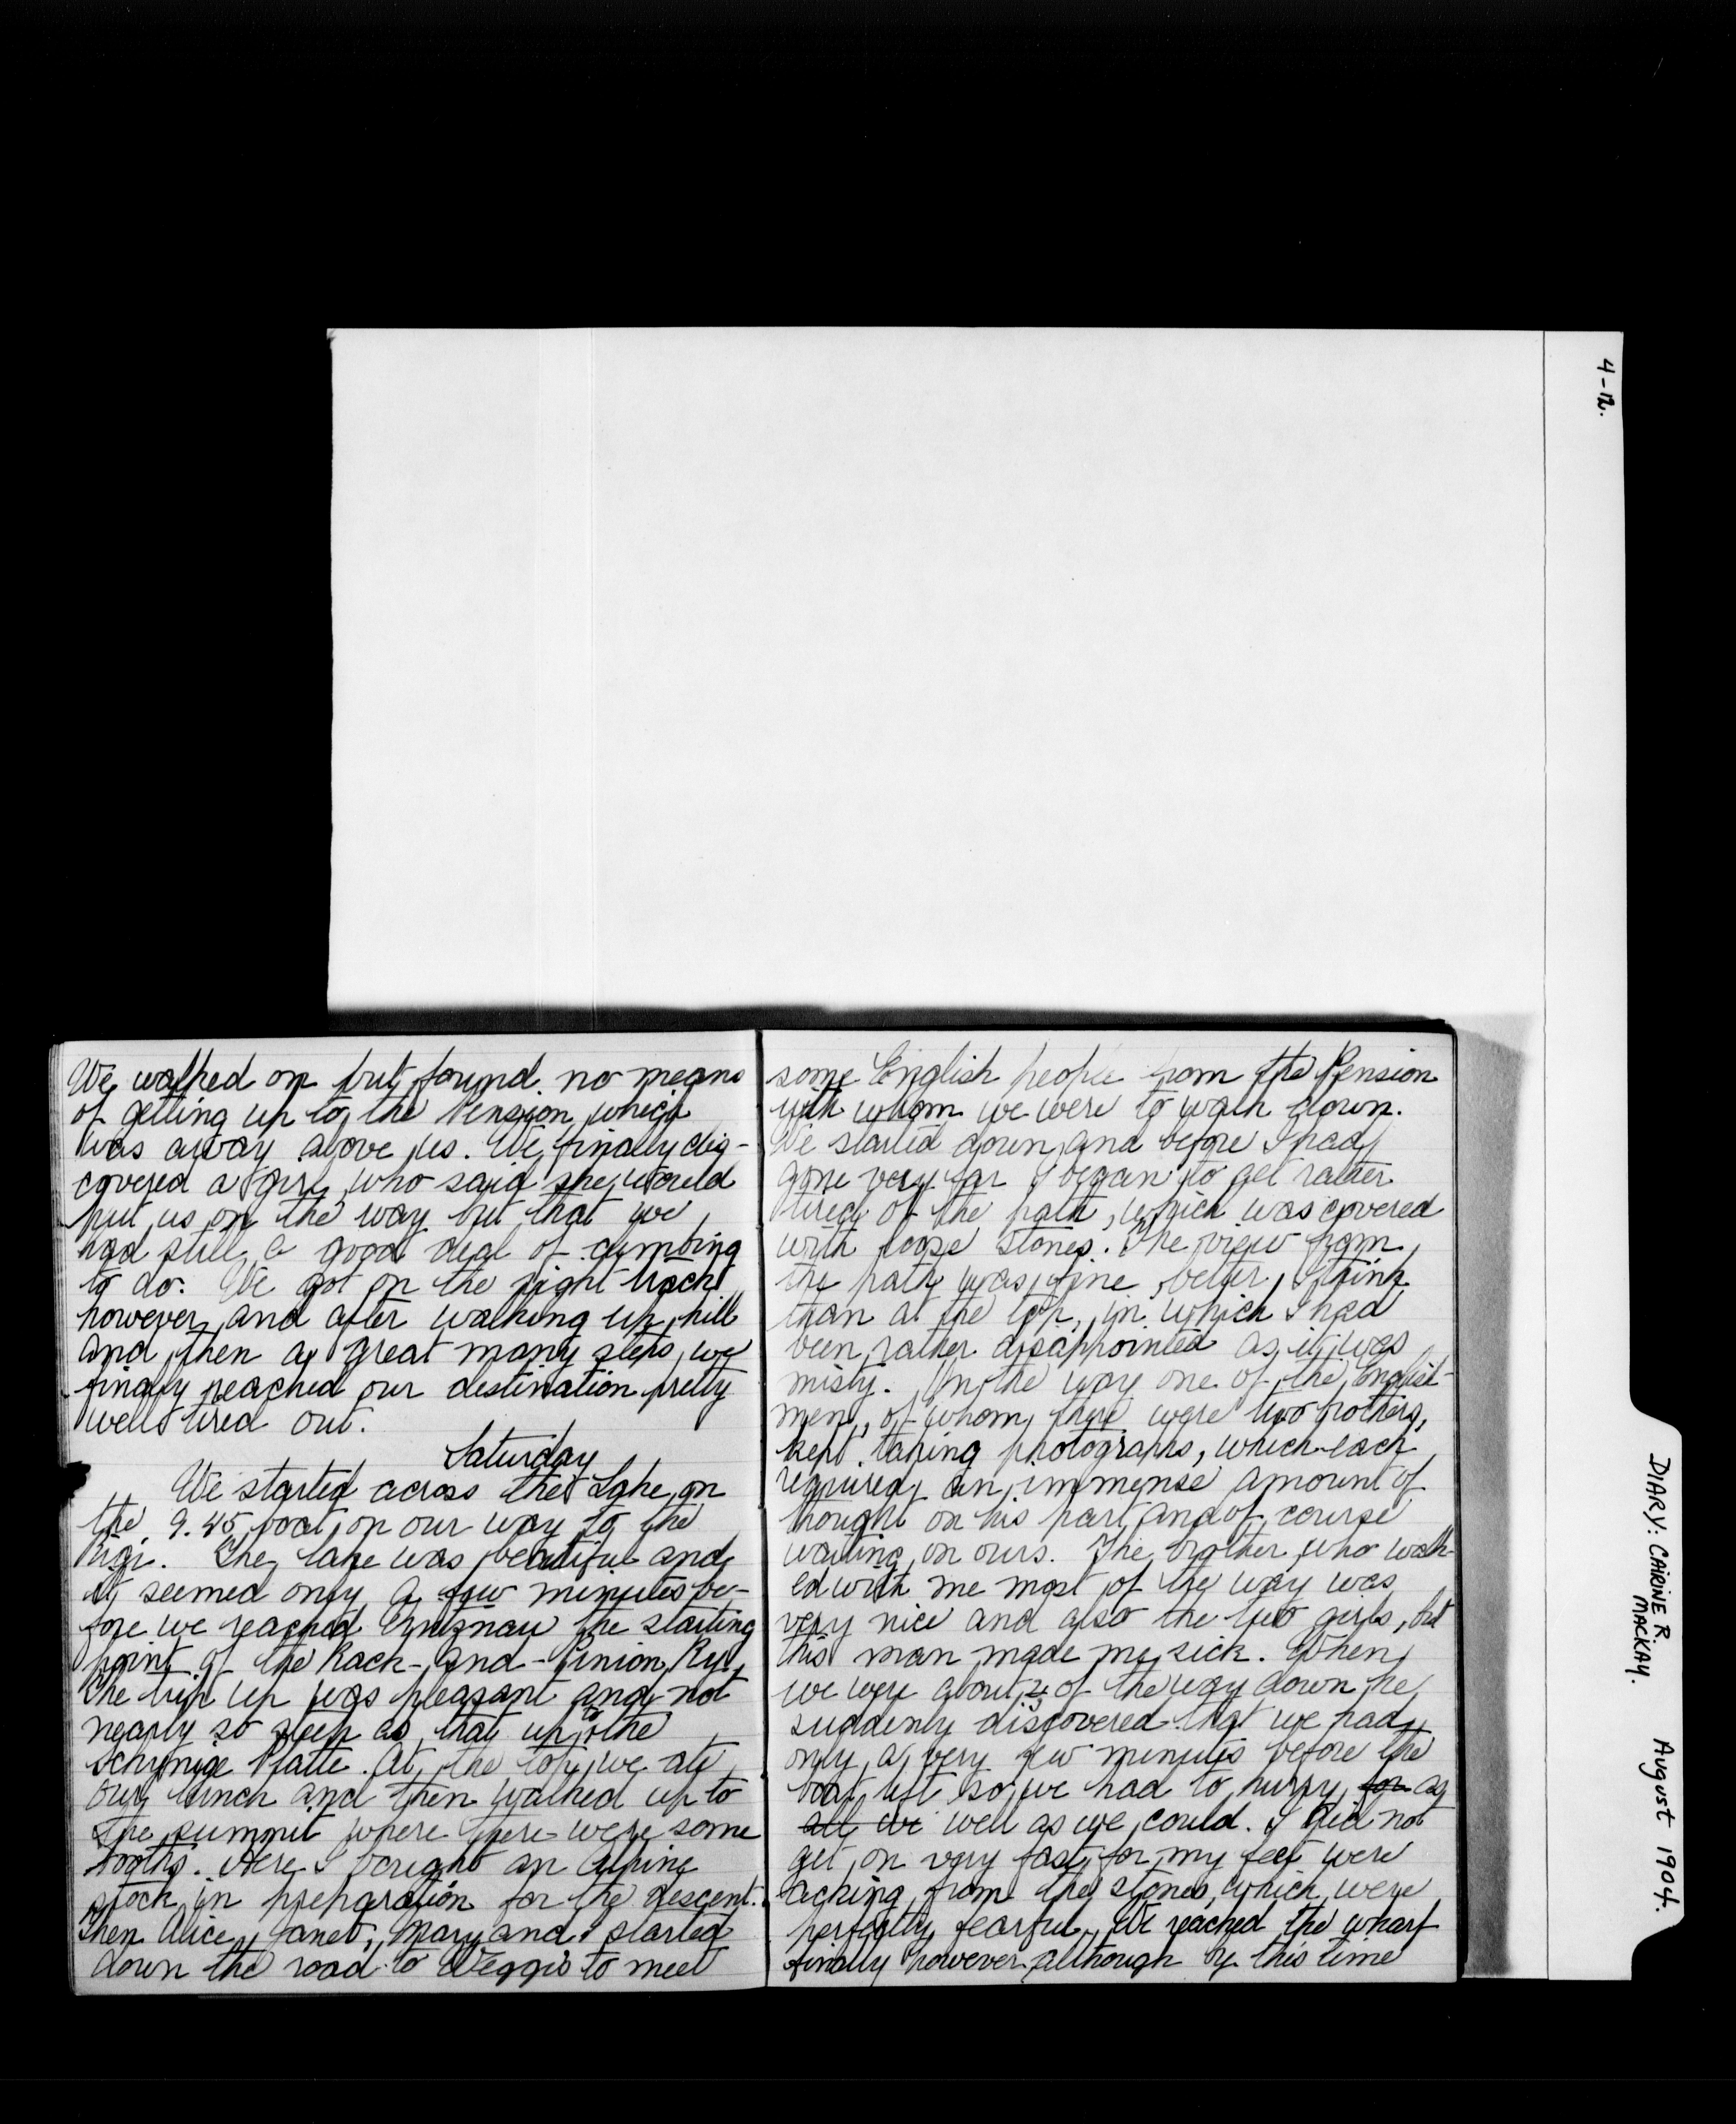 4-12.
DIARY: CAIRINE R.
MACKAY.
August 1904.
We walked on but found no means
of getting up to the Pension which
was away above us. We finally dis-
covered a girl who said she would
put us on the way but that we
had still a good deal of climbing
to do. We got on the right track
however, and after walking up hill
and then a great many steps, we
finally reached our destination pretty
well tired out.
Saturday
We started across the Lake on
the 9.45 boat on our way to the
Rigi. The lake was beautiful and
it seemed only a few minutes be-
fore we reached Vitznau the starting
point of the Rack-and-Pinion Ry.
The trip up was pleasant and not
nearly so steep as that up to the
Schynige Platte. At the top we ate
our lunch and then walked up to
the summit where there were some
booths. Here I bought an Alpine
stock in preparation for the descent.
Then Alice, Janet, Mary and I started
down the road to Weggis to meet
some English people from the Pension
with whom we were to walk down.
We started down and before I had
gone very far I began to get rather
tired of the path, which was covered
with loose stones. The view from
the path was fine, better, I think
than at the top, in which I had
been rather disappointed as it was
misty. On the way one of the English-
men, of whom there were two brothers,
kept taking photographs, which each
required an immense amount of
thought on his part and of course
waiting on ours. The brother who walk-
ed with me most of the way was
very nice and also the two girls, but
this man made me sick. When
we were about of the way down he
suddenly discovered that we had
only a very few minutes before the
boat left so we had to hurry for as
all we well as we could. I did not
get on very fast for my feet were
aching from the stones, which were
perfectly fearful. We reached the wharf
finally however although by this time